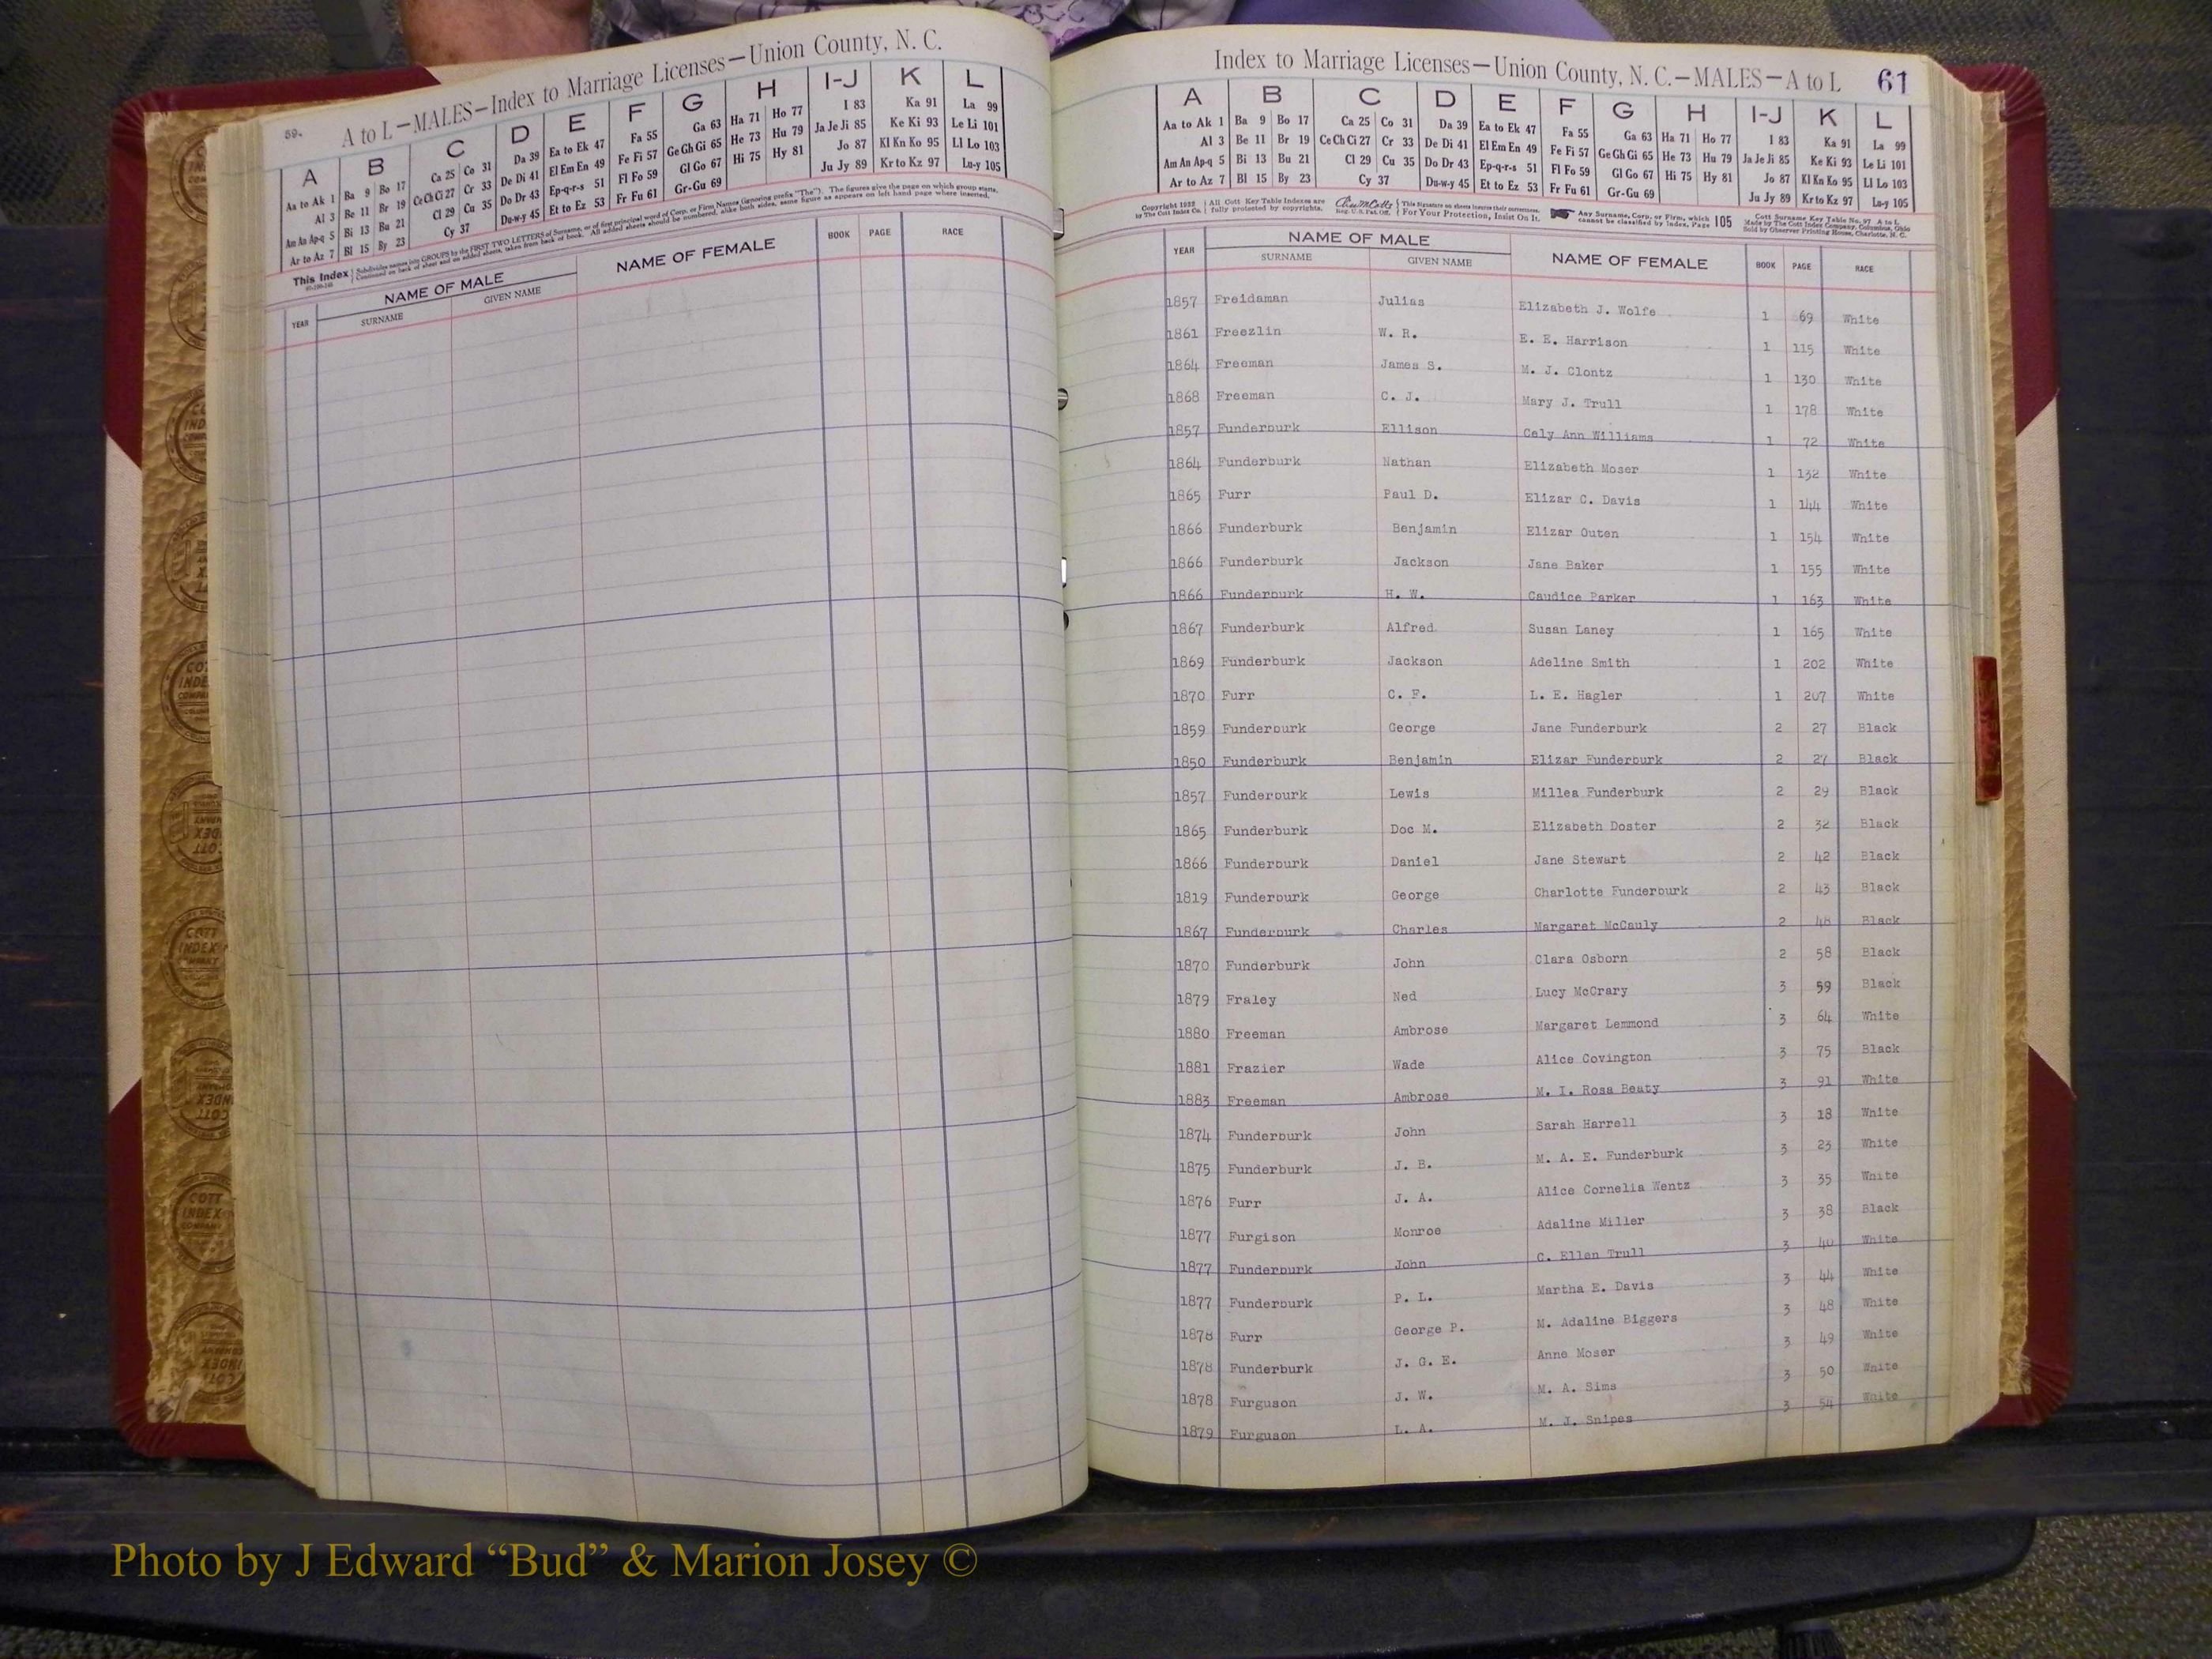 59.
A to L—MALES—Index to Marriage Licenses—Union County, N. C.
A B C D E F G H I-J K L
Aa to Ak 1 Ba 9 Bo 17 Ca 25 Co 31 Da 39 Ea to Ek 47 Fa 55 Ga 63 Ha 71 Ho 77 I 83 Ka 91 La 99
Al 3 Be 11 Br 19 Ce Ch Ci 27 Cr 33 De Di 41 El Em En 49 Fe Fi 57 Ge Gh Gi 65 He 73 Hu 79 Ja Je Ji 85 Ke Ki 93 Le Li 101
Am An Ap-q 5 Bi 13 Bu 21 Cl 29 Cu 35 Do Dr 43 Ep-q-r-s 51 Fl Fo 59 Gl Go 67 Hi 75 Hy 81 Jo 87 Kl Kn Ko 95 Ll Lo 103
Ar to Az 7 Bl 15 By 23 Cy 37 Du-w-y 45 Et to Ez 53 Fr Fu 61 Gr-Gu 69 Ju Jy 89 Kr to Kz 97 Lu-y 105
This Index Subdivides names into GROUPS by the FIRST TWO LETTERS of Surname, or of first principal word of Corp. or Firm Names (ignoring prefix "The"). The figures give the page on which group starts.
Continued on back of sheet and on added sheets, taken from back of book. All added sheets should be numbered, alike both sides, same figure as appears on left hand page where inserted.
YEAR NAME OF MALE NAME OF FEMALE BOOK PAGE RACE
SURNAME GIVEN NAME
Index to Marriage Licenses—Union County, N. C.—MALES—A to L 61
A B C D E F G H I-J K L
Aa to Ak 1 Ba 9 Bo 17 Ca 25 Co 31 Da 39 Ea to Ek 47 Fa 55 Ga 63 Ha 71 Ho 77 I 83 Ka 91 La 99
Al 3 Be 11 Br 19 Ce Ch Ci 27 Cr 33 De Di 41 El Em En 49 Fe Fi 57 Ge Gh Gi 65 He 73 Hu 79 Ja Je Ji 85 Ke Ki 93 Le Li 101
Am An Ap-q 5 Bi 13 Bu 21 Cl 29 Cu 35 Do Dr 43 Ep-q-r-s 51 Fl Fo 59 Gl Go 67 Hi 75 Hy 81 Jo 87 Kl Kn Ko 95 Ll Lo 103
Ar to Az 7 Bl 15 By 23 Cy 37 Du-w-y 45 Et to Ez 53 Fr Fu 61 Gr-Gu 69 Ju Jy 89 Kr to Kz 97 Lu-y 105
Copyright 1932 All Cott Key Table Indexes are This Signature on sheets insures their correctness. Any Surname, Corp. or Firm, which Cott Surname Key Table No. 97 A to L
by The Cott Index Co. fully protected by copyrights. Reg. U.S. Pat. Off. For Your Protection, Insist On It. cannot be classified by Index, Page 105 Made by The Cott Index Company, Columbus, Ohio
Sold by Observer Printing House, Charlotte, N. C.
YEAR NAME OF MALE NAME OF FEMALE BOOK PAGE RACE
SURNAME GIVEN NAME
1857 Freidaman Julias Elizabeth J. Wolfe 1 69 White
1861 Freezlin W. R. E. E. Harrison 1 115 White
1864 Freeman James S. M. J. Clontz 1 130 White
1868 Freeman C. J. Mary J. Trull 1 178 White
1857 Funderburk Ellison Cely Ann Williams 1 72 White
1864 Funderburk Nathan Elizabeth Moser 1 132 White
1865 Furr Paul D. Elizar C. Davis 1 144 White
1866 Funderburk Benjamin Elizar Outen 1 154 White
1866 Funderburk Jackson Jane Baker 1 155 White
1866 Funderburk H. W. Caudice Parker 1 163 White
1867 Funderburk Alfred Susan Laney 1 165 White
1869 Funderburk Jackson Adeline Smith 1 202 White
1870 Furr C. F. L. E. Hagler 1 207 White
1859 Funderburk George Jane Funderburk 2 27 Black
1850 Funderburk Benjamin Elizar Funderburk 2 27 Black
1857 Funderburk Lewis Millea Funderburk 2 29 Black
1865 Funderburk Doc M. Elizabeth Doster 2 32 Black
1866 Funderburk Daniel Jane Stewart 2 42 Black
1819 Funderburk George Charlotte Funderburk 2 43 Black
1867 Funderburk Charles Margaret McCauly 2 48 Black
1870 Funderburk John Clara Osborn 2 58 Black
1879 Fraley Ned Lucy McCrary 3 59 Black
1880 Freeman Ambrose Margaret Lemmond 3 64 White
1881 Frazier Wade Alice Covington 3 75 Black
1883 Freeman Ambrose M. I. Rosa Beaty 3 91 White
1874 Funderburk John Sarah Harrell 3 18 White
1875 Funderburk J. B. M. A. E. Funderburk 3 23 White
1876 Furr J. A. Alice Cornelia Wentz 3 35 White
1877 Furgison Monroe Adaline Miller 3 38 Black
1877 Funderburk John C. Ellen Trull 3 40 White
1877 Funderburk P. L. Martha E. Davis 3 44 White
1878 Furr George P. M. Adaline Biggers 3 48 White
1878 Funderburk J. G. E. Anne Moser 3 49 White
1878 Furguson J. W. M. A. Sims 3 50 White
1879 Furguson L. A. M. J. Snipes 3 54 White
Photo by J Edward “Bud” & Marion Josey ©